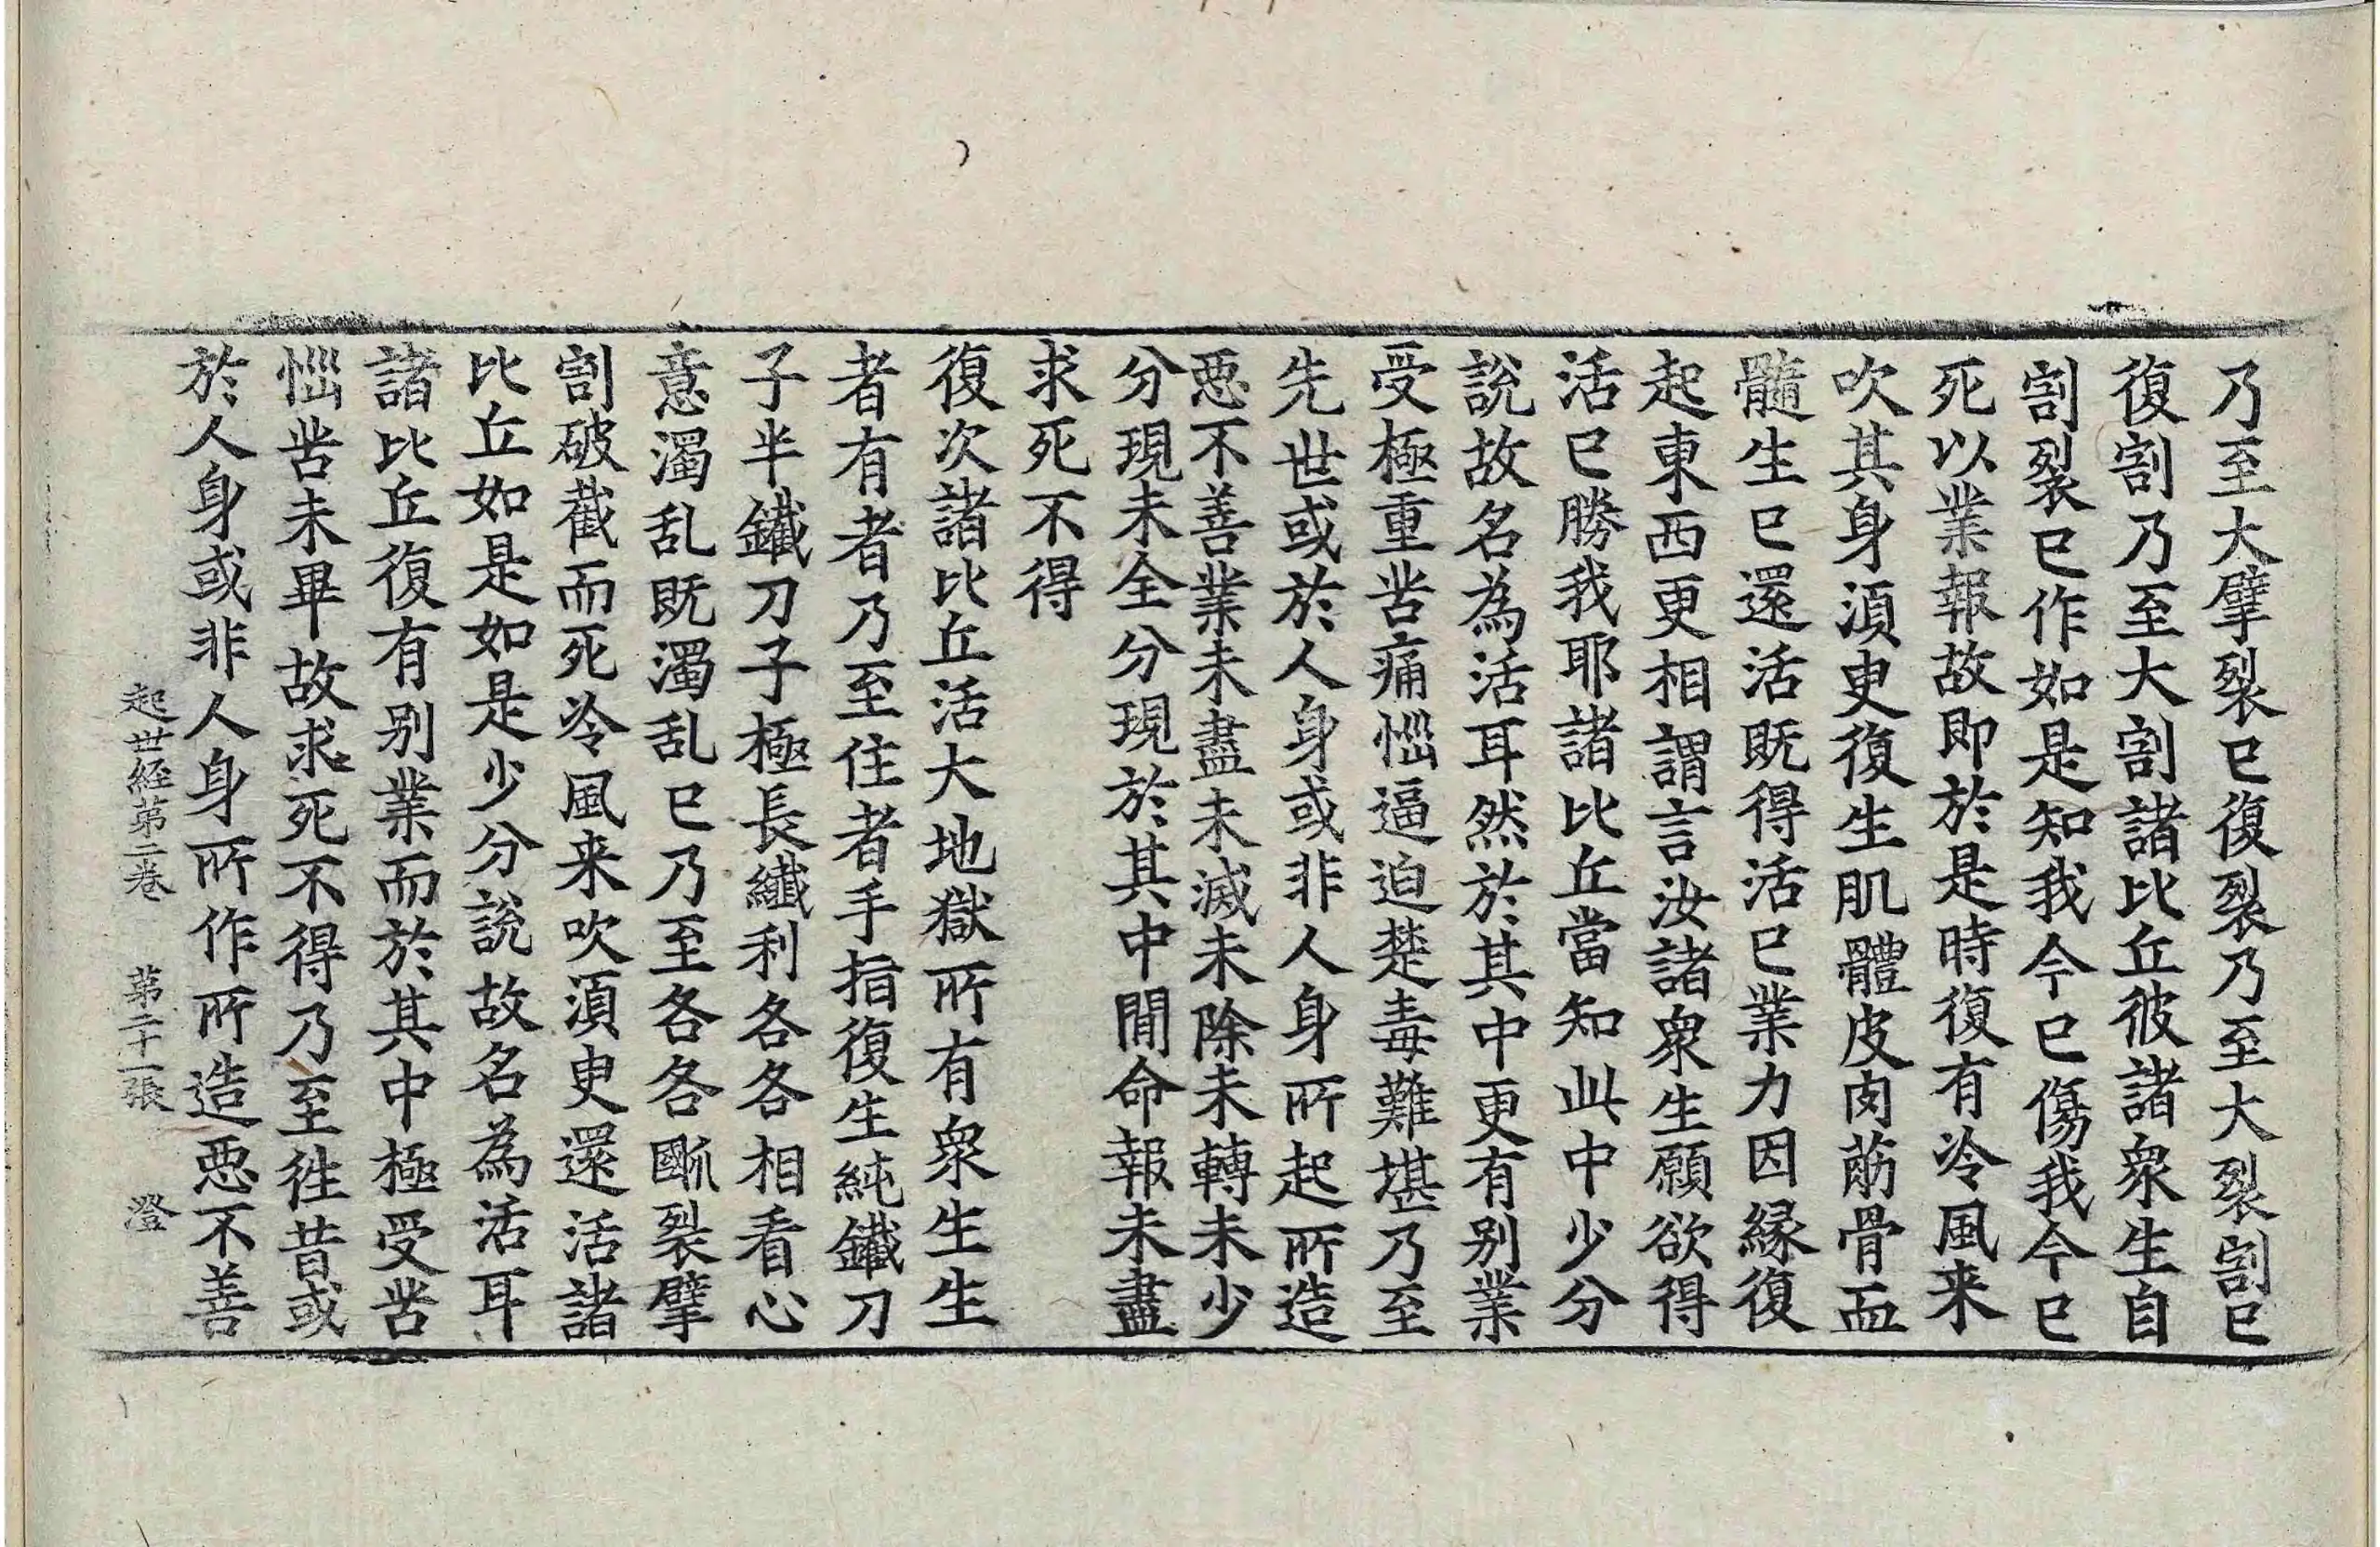 乃至大擘裂已復裂乃至大裂割已
復割乃至大割諸比丘彼諸衆生自
割裂已作如是知我今已傷我今已
死以業報故即於是時復有冷風来
吹其身湏臾復生肌體皮肉荕骨血
髓生已還活既得活已業力因縁復
起東西更相謂言汝諸衆生願欲得
活已勝我耶諸比丘當知此中少分
說故名為活耳然於其中更有别業
受極重苦痛惱逼迫楚毒難堪乃至
先世或於人身或非人身所起所造
惡不善業未盡未滅未除未轉未少
分現未全分現於其中間命報未盡
求死不得
復次諸比丘活大地獄所有衆生生
者有者乃至住者手指復生純鐵刀
子半鐵刀子極長纖利各各相看心
意濁乱既濁乱已乃至各各㔃裂擘
割破截而死冷風来吹湏臾還活諸
比丘如是如是少分說故名為活耳
諸比丘復有别業而於其中極受苦
惱苦未畢故求死不得乃至徃昔或
於人身或非人身所作所造惡不善
起世経第二卷　第二十一張　澄